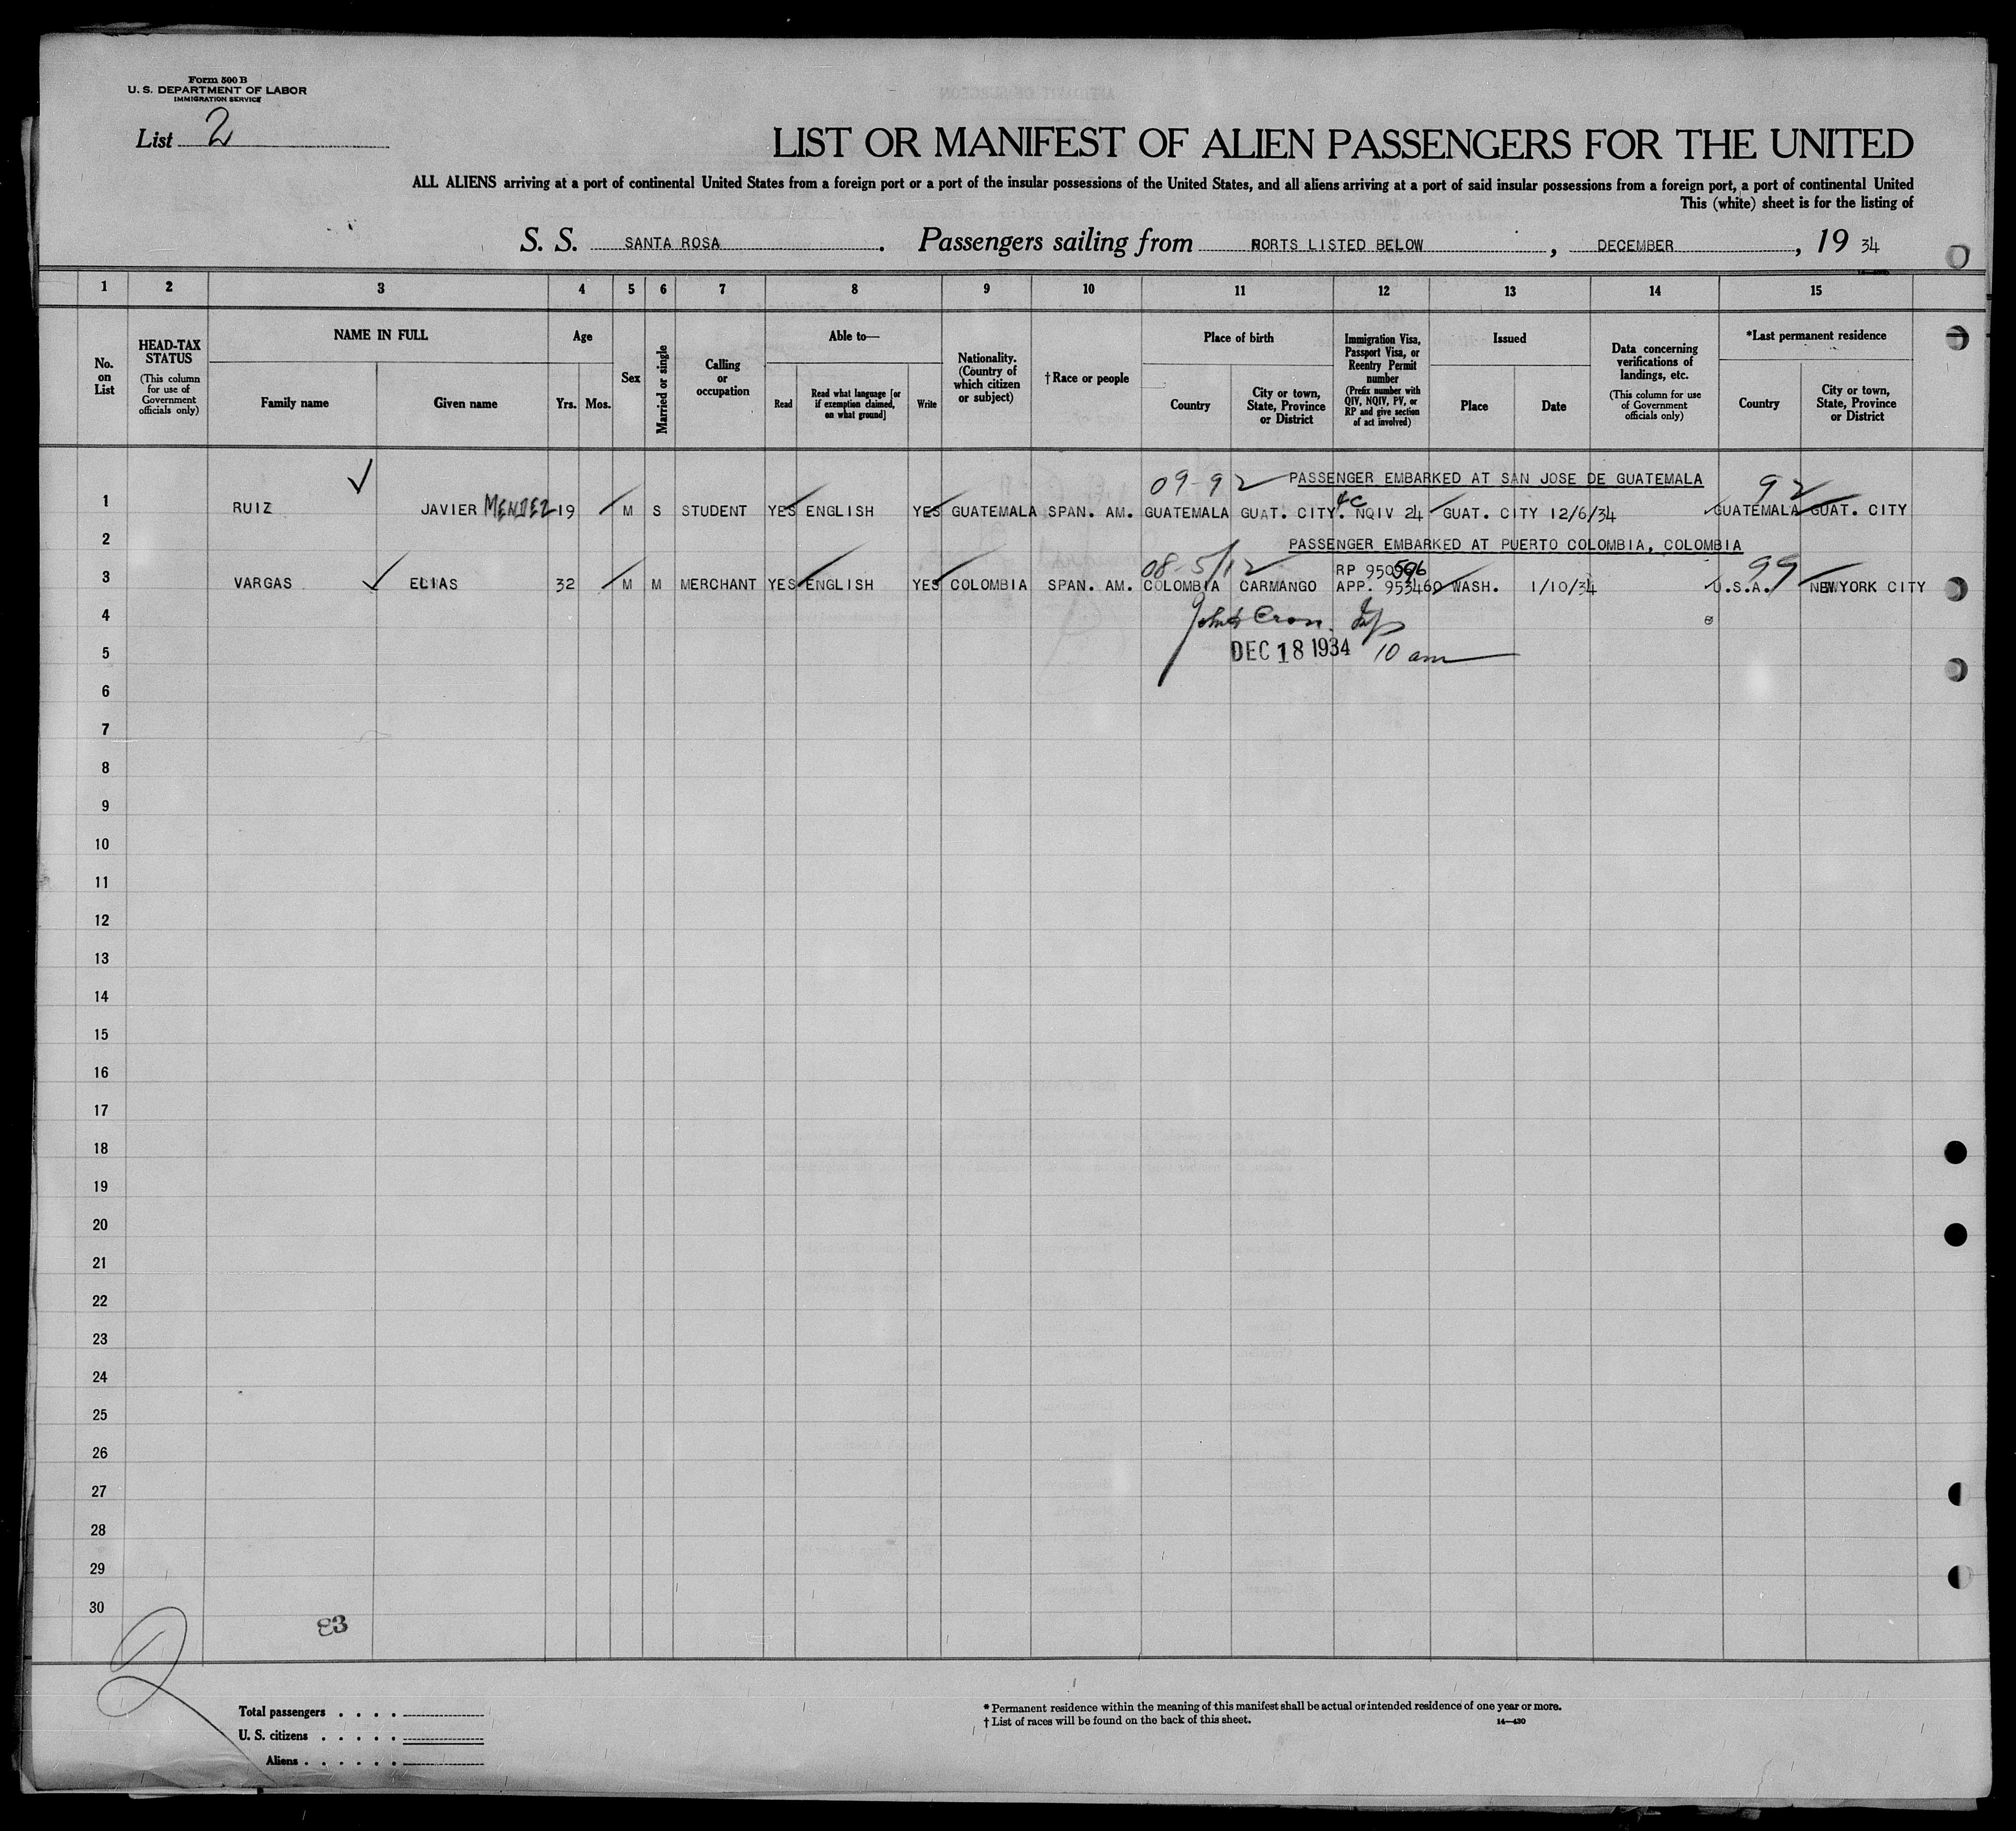 Form 500 B
U. S. DEPARTMENT OF LABOR
IMMIGRATION SERVICE
List 2
LIST OR MANIFEST OF ALIEN PASSENGERS FOR THE UNITED
ALL ALIENS arriving at a port of continental United States from a foreign port or a port of the insular possessions of the United States, and all aliens arriving at a port of said insular possessions from a foreign port, a port of continental United
This (white) sheet is for the listing of
S. S. SANTA ROSA. Passengers sailing from PORTS LISTED BELOW, DECEMBER, 19 34
1 2 3 4 5 6 7 8 9 10 11 12 13 14 15
No. on List
HEAD-TAX STATUS
(This column for use of Government officials only)
NAME IN FULL
Family name
Given name
Age
Yrs. Mos.
Sex
Married or single
Calling or occupation
Able to—
Read
Read what language [or if exemption claimed, on what ground]
Write
Nationality. (Country of which citizen or subject)
† Race or people
Place of birth
Country
City or town, State, Province or District
Immigration Visa, Passport Visa, or Reentry Permit number
(Prefix number with QIV, NQIV, PV, or RP and give section of act involved)
Issued
Place
Date
Data concerning verifications of landings, etc.
(This column for use of Government officials only)
*Last permanent residence
Country
City or town, State, Province or District
09-92 PASSENGER EMBARKED AT SAN JOSE DE GUATEMALA 92
1 RUIZ JAVIER MENDEZ 19 M S STUDENT YES ENGLISH YES GUATEMALA SPAN. AM. GUATEMALA GUAT. CITY. 4C NQIV 24 GUAT. CITY 12/6/34 GUATEMALA GUAT. CITY
2 PASSENGER EMBARKED AT PUERTO COLOMBIA, COLOMBIA
08-5/12 RP 950596 99
3 VARGAS ELIAS 32 M M MERCHANT YES ENGLISH YES COLOMBIA SPAN. AM. COLOMBIA CARMANGO APP. 953460 WASH. 1/10/34 U.S.A. NEW YORK CITY
4 Cron. Insp
5 DEC 18 1934 10 am
6
7
8
9
10
11
12
13
14
15
16
17
18
19
20
21
22
23
24
25
26
27
28
29
30
83
2
Total passengers . . . .
U. S. citizens . . . . .
Aliens . . . . . .
* Permanent residence within the meaning of this manifest shall be actual or intended residence of one year or more.
† List of races will be found on the back of this sheet.
14—430